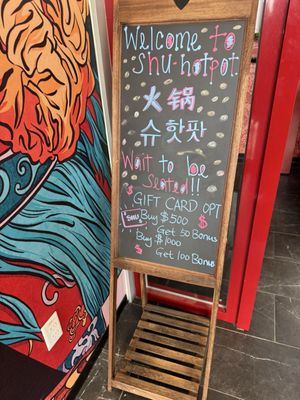 Welcome to
Shu-hotpot
火锅
슈핫팟
Wait to be
Seated!!
$
GIFT CARD OPT
SHU
Buy $500
$
Get 50 Bonus
Buy $1000
$
Get 100 Bonus